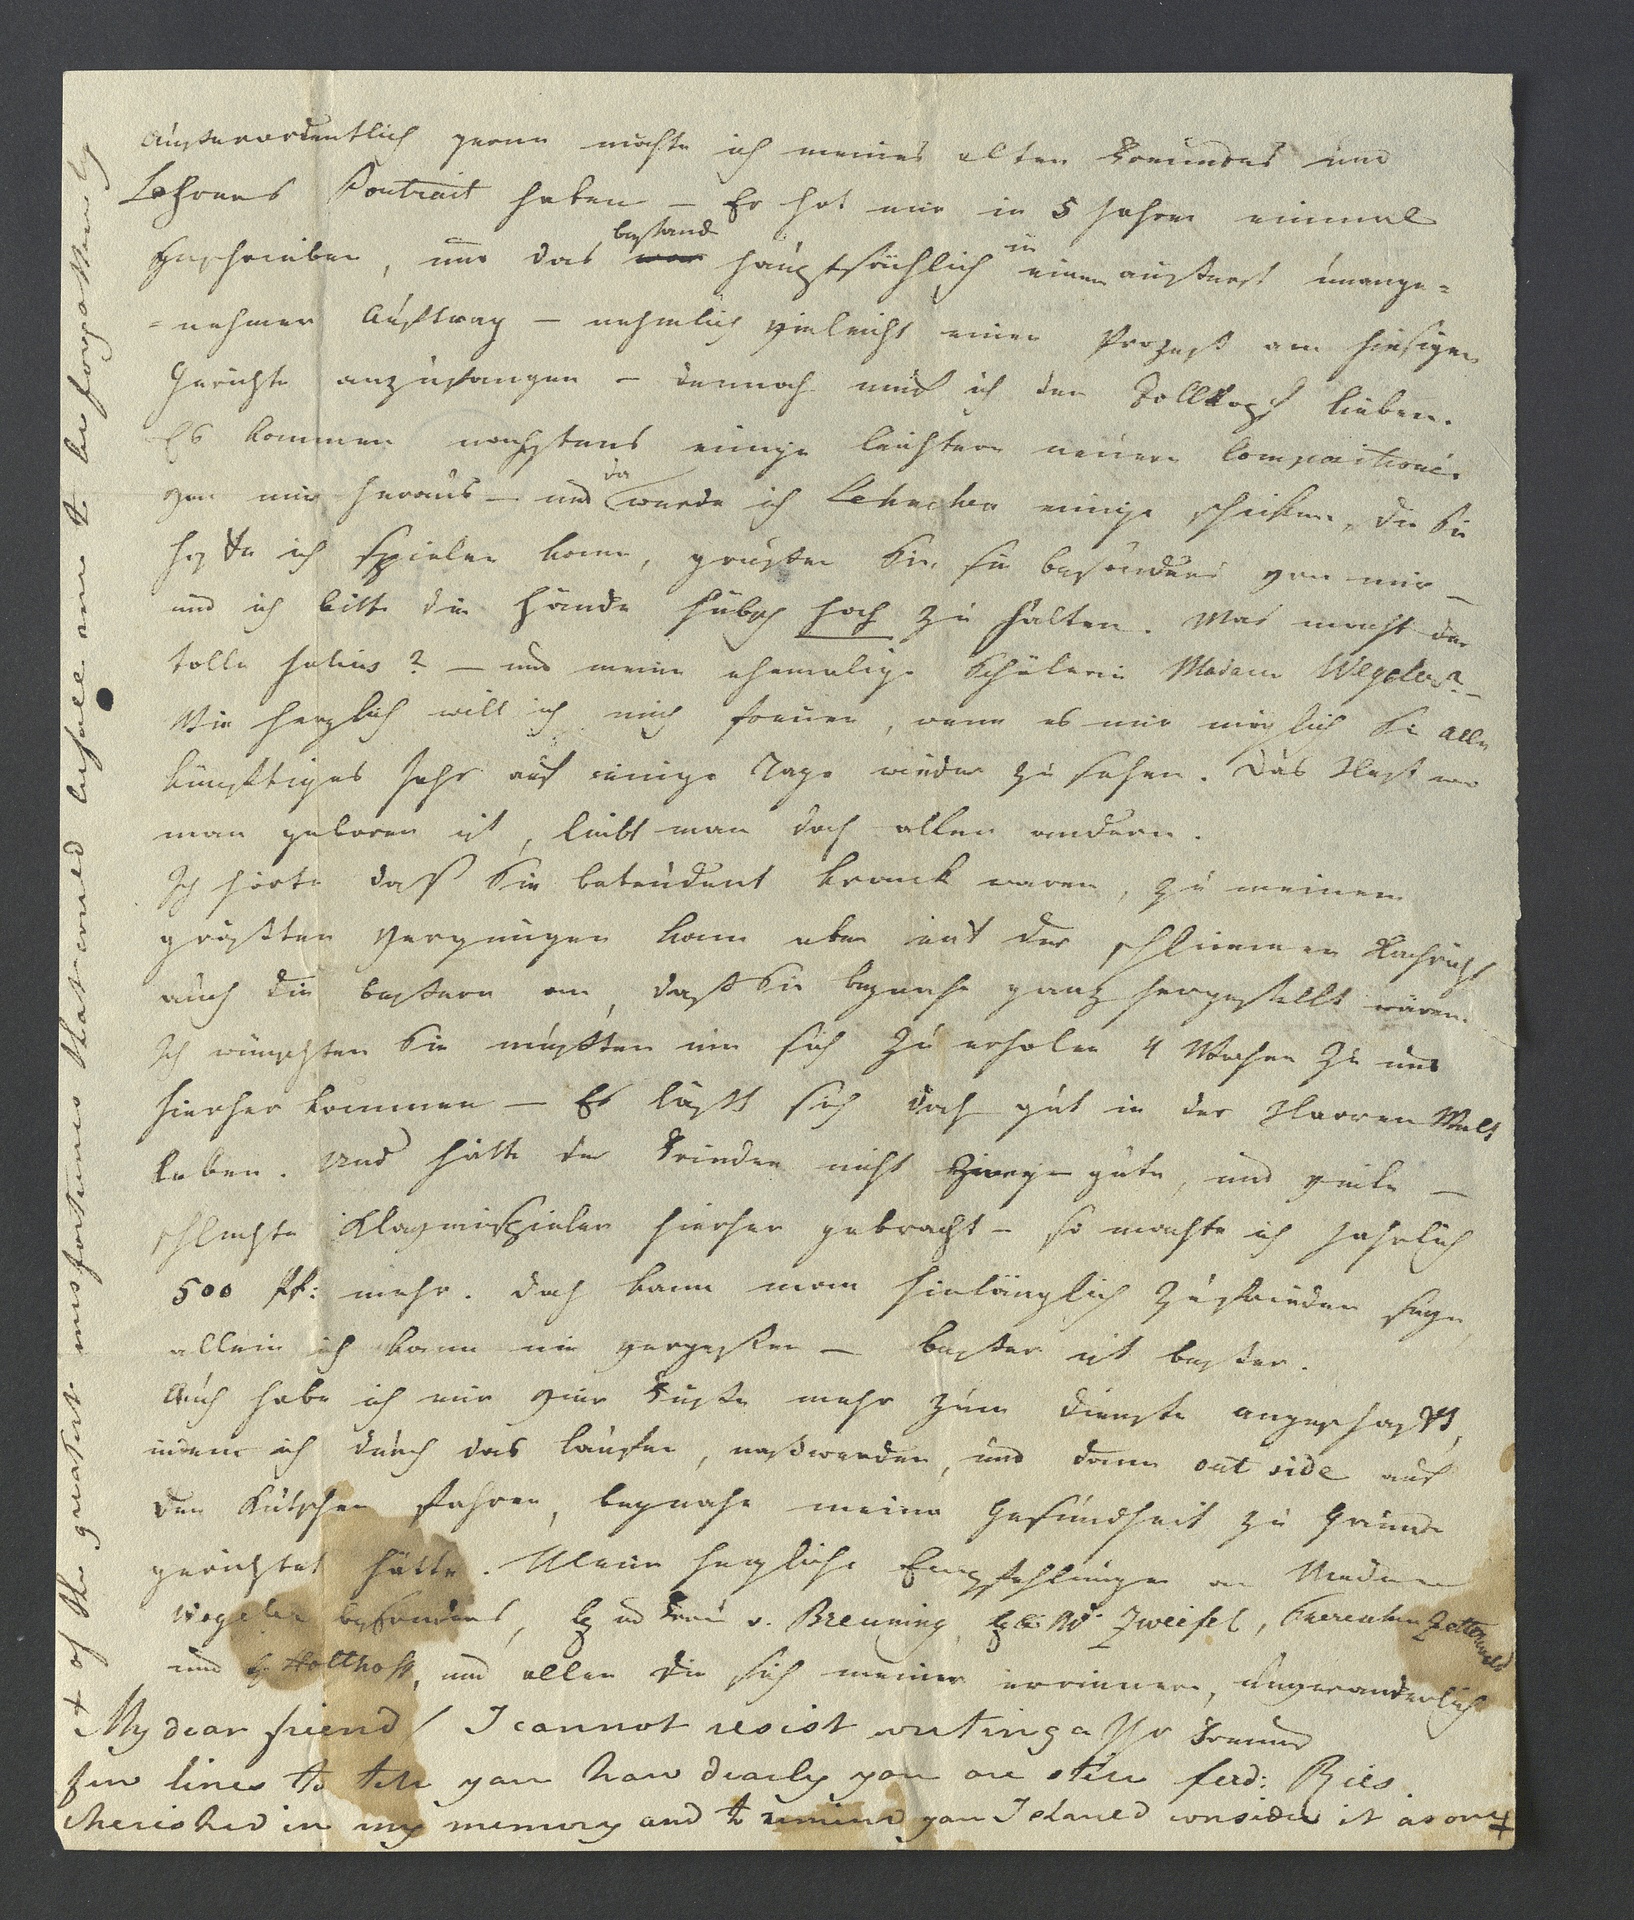 Außerordentlich gerne möchte ich meines alten Freundes und
Lehrers Portrait haben – Er hat mir in 5 Jahren einmal
geschrieben, und das bestand hauptsächlich in einem äußerst unange-
=nehmen Auftrag – nehmlich vieleicht einen Prozeß am hiesigen
Gerichte anzufangen – dennoch muß ich den Tollkopf lieben.
Es kommen nächstens einige leichtere neuere Compositionen
von mir heraus – und da werde ich einige schicken, die Sie
ich spielen kann, grüßen Sie sie besonders von mir –
und ich bitte die Hände hübsch hoch zu halten. Was macht der
tolle Julius? – und meine ehemalige Schülerin Madam Wegeler? –
Wie herzlich will ich mich freuen, wenn es mir möglich Sie alle
künftiges Jahr auf einige Tage wieder zu sehen. Das Nest wo
man geboren ist, liebt man doch allen andern.
Ich hörte daß Sie bedeudent kranck waren, zu meinem
größten Vergnügen kam aber mit der schlimmen Nachricht
auch die bessere an, daß Sie beynahe ganz hergestellt wären.
Ich wünschten Sie müßten um sich zu erholen 4 Wochen zu uns
hierher kommen – Es läßt sich doch gut in der Narren Welt
leben. Und hätte der Frieden nicht einige gute, und viele –
schlechte Klavierspieler hierher gebracht – so machte ich jahrlich
500 Pf: mehr. Doch kann man hinlänglich zufrieden seyn,
allein ich kann nie vergessen – besser ist besser.
Auch habe ich mir vier Füße mehr zum Dienste angeschafft,
indem ich durch das laufen, naßwerden, und dann out side auf
den Kutschen fahren, beynahe meine Gesundheit zu Grunde
gerichtet hätte. Meine herzliche Empfehlungen an Madam
Wegeler besonders, H und Frau v. Breuning, Zweifel,
und H. Holthoff, und allen die sich meiner erinnern, Unveranderlich
Ihr Freund
Ferd: Ries
My dear friend! I cannot resist writing a
few lines to tell you how dearly you are still
cherished in my memory and to remind you I should consider it as one +
+ of the greatest misfortunes that could befall me to be forgotten by